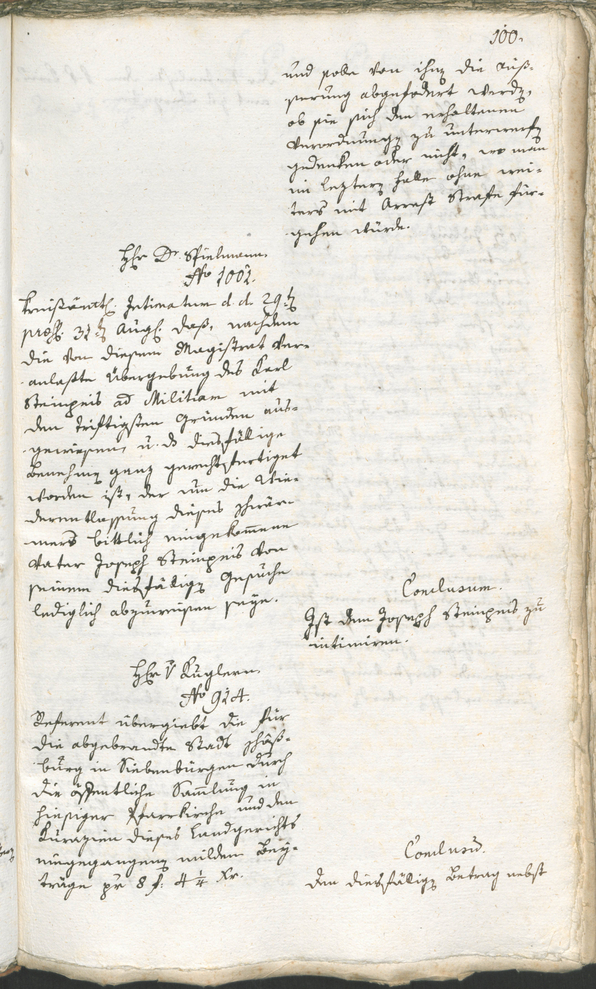 100.
und solle von ihm die Äuß-
serung abgefordert werden,
ob sie sich den erhaltenen
Verordnungen zu unterwerfen
gedenken oder nicht, wo man
im leztern Falle ohne wei-
ters mit Arrest Strafe für-
gehen würde.
Hr Dr. Spielmann.
No 1002.
Kreisämtl. Intimatum d. d. 29ten
pross. 31ten Augl. daß, nachdem
die von diesem Magistrat ver-
anlaßte Übergebung des Karl
Steinpeis ad Militiam mit
den triftigsten Gründen aus-
gewiesen, u. das diesfällige
Benehmen ganz gerechtfertiget
worden ist, der um die Wie-
derentlassung dieses Schwär-
mers bittlich eingekommene
Vater Joseph Steinpeis von
seinem diesfälligen Gesuche
lediglich abzuweisen seye.
Conclusum.
Ist dem Joseph Steinpeis zu
intimiren.
Hr v Kuglern.
No 914.
Referent übergiebt die für
die abgebrandte Stadt Schäß-
burg in Siebenbürgen durch
die öffentliche Sammlung in
hiesiger Pfarrkirche und den
Kurazien dieses Landgerichts
eingegangenen milden Bey-
träge pr 8 f. 4 1/4 Xr.
Conclusum.
Den diesfälligen Betrag nebst